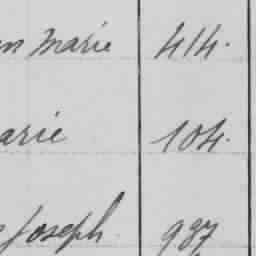 Marie 414.
arie 104.
Joseph 987